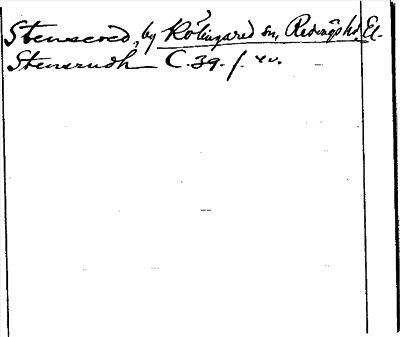 Stensered, by Rölingared sn, Redvägs hd. El.
Stensrudh C. 39. f. xv.